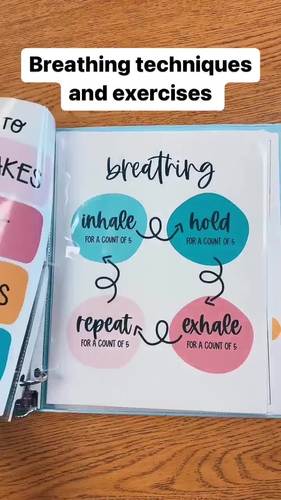 Breathing techniques
and exercises
TO
AKES
S
breathing
inhale
FOR A COUNT OF 5
hold
FOR A COUNT OF 5
repeat
FOR A COUNT OF 5
exhale
FOR A COUNT OF 5